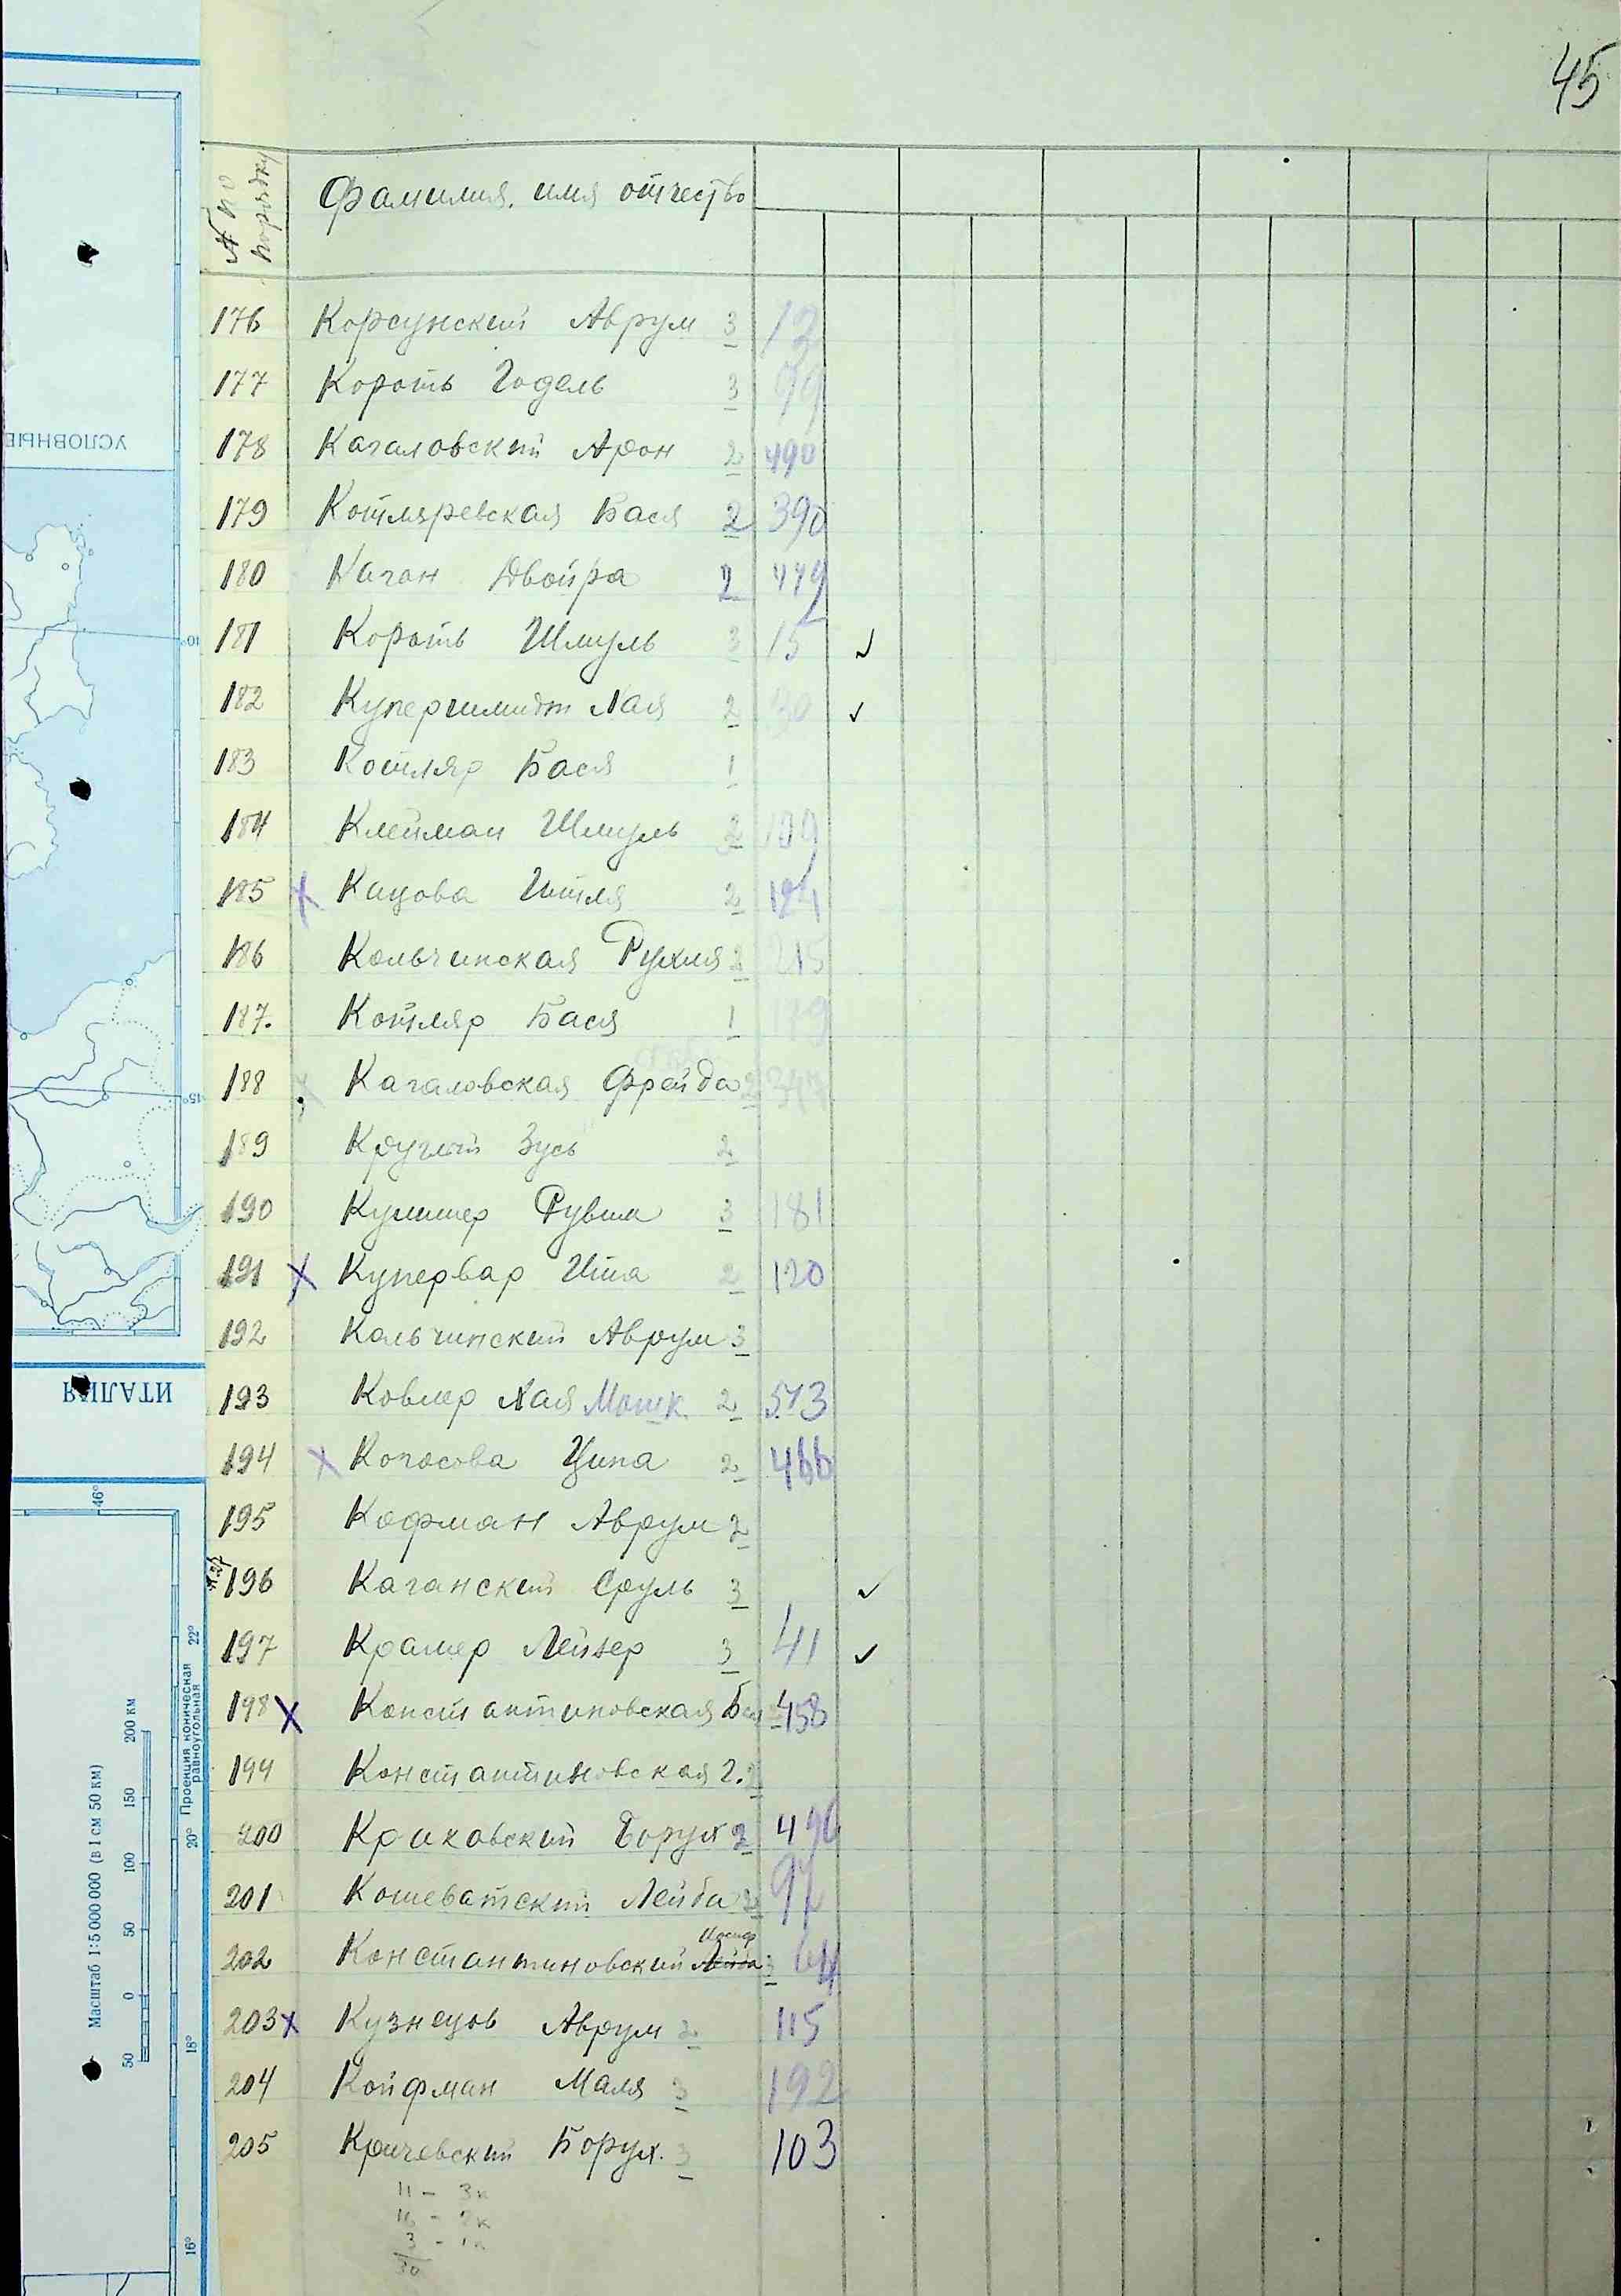 45
№ по порядку
Фамилия, имя отчество
176 Корсунский Аврум 3 13
177 Короть Годель 3 99
178 Кагаловский Арон 2 490
179 Котляревская Бася 2 390
180 Каган Двойра 2 479
181 Короть Шмуль 3 15 ✓
182 Купершмидт Хая 2 30 ✓
183 Котляр Бася 1
184 Клейман Шмуль 2 109
185 х Кацова Гитля 2 124
186 Кальчинская Рухля 2 215
187. Котляр Бася 1
188 х Кагаловская Фрейда 2
189 Круглый Зусь 2
190 Кушнер Рувин 3 181
191 х Купервар Ита 2 120
192 Кальчинский Аврум 3
193 Ковлер Хая Мошк. 2 513
194 х Когосова Ципа 2 466
195 Кофман Аврум 2
196 Каганский Сруль 3 ✓
197 Крамер Лейзер 3 41 ✓
198 х Константиновская 458
199 Константиновская Г. 2
200 Краковский Борух 2 490
201 Кошеватский Лейба 3 94
202 Константиновский Лейба Иосиф 3 64
203 х Кузнецов Аврум 2 115
204 Койфман Маля 3 192
205 Кричевский Борух. 3 103
11 - 3к
16 - 2к
3 - 1к
30
УСЛОВНЫЕ
10°
15°
ИТАЛИЯ
46°
22°
20°
18°
16°
Проекция коническая равноугольная
Масштаб 1:5 000 000 (в 1 см 50 км)
50 0 50 100 150 200 км